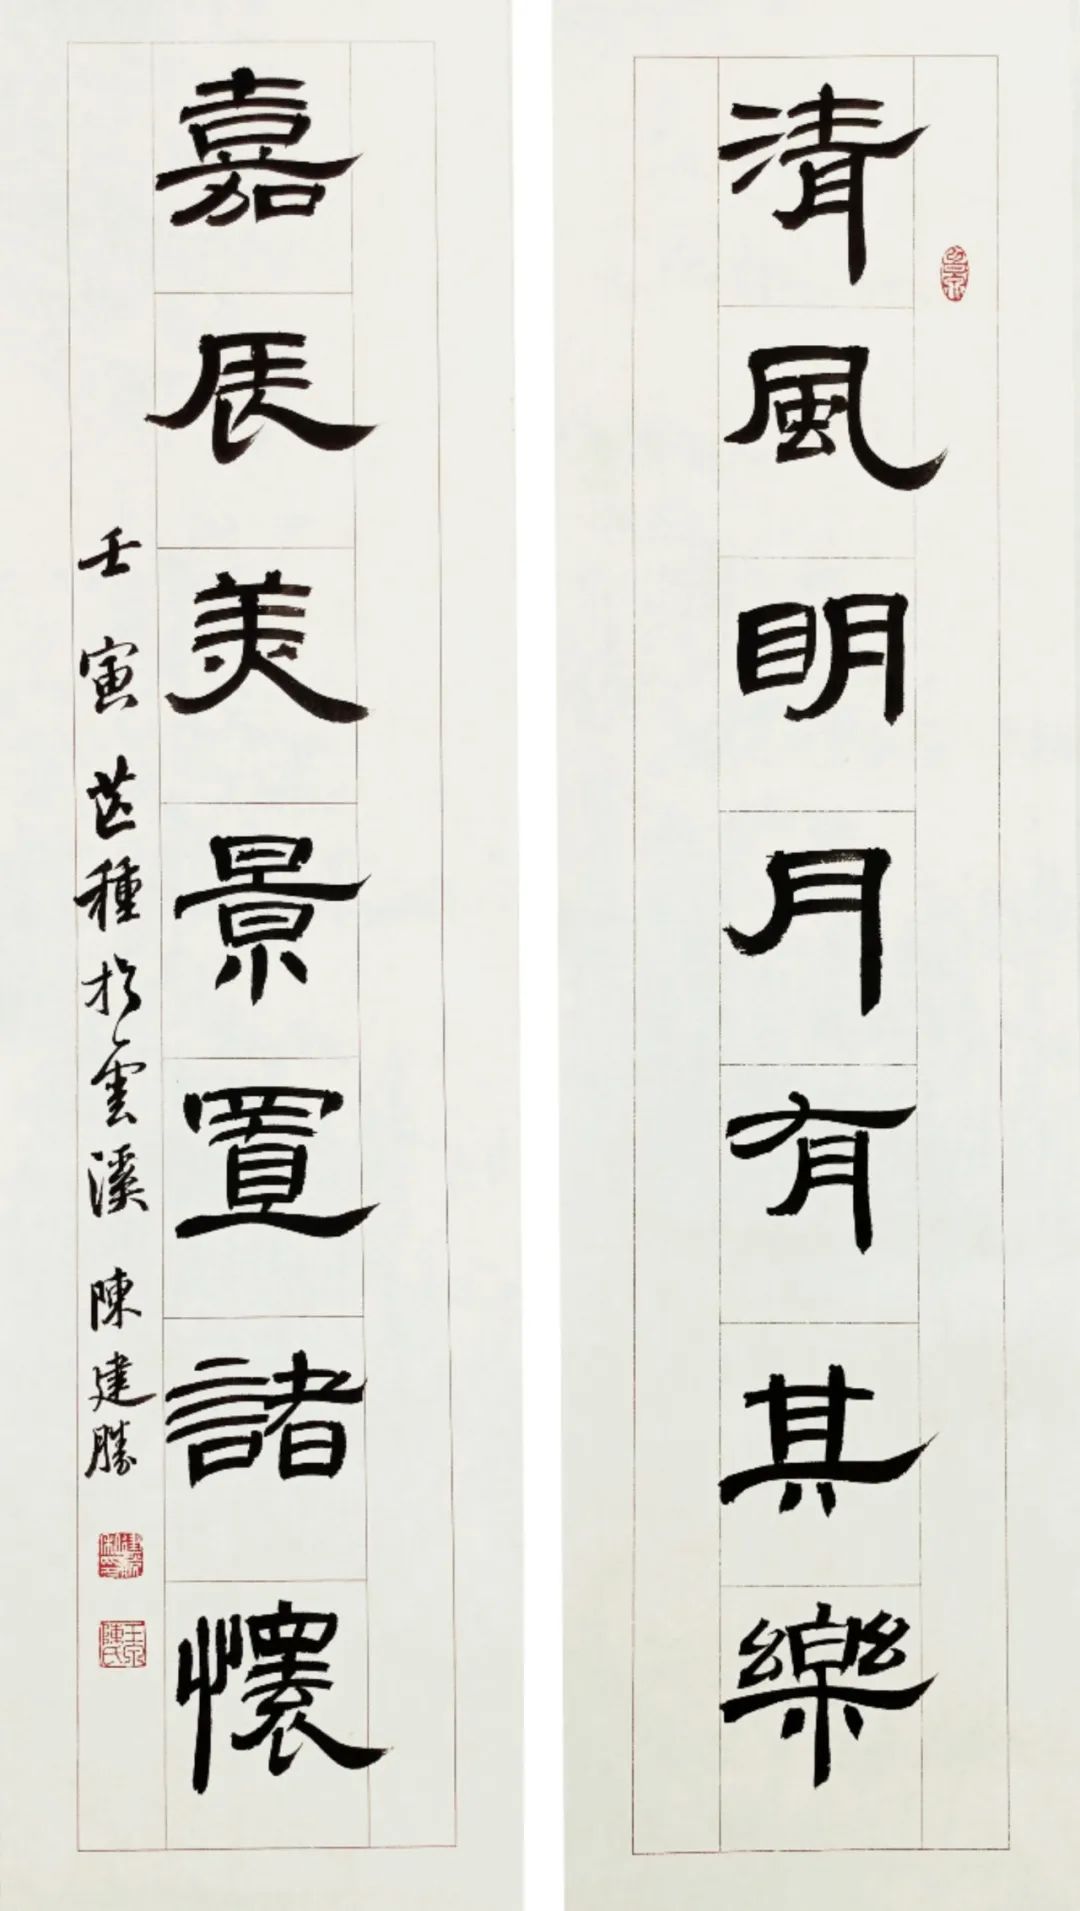 清風明月有其樂
嘉辰美景置諸懷
壬寅芒種於雲溪 陳建勝